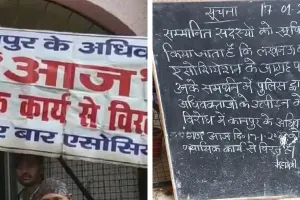 पुर के अधिव
"आज"
क कार्य से विरत
बार एसोसि
सूचना 17-01-
सम्मानित सदस्यों को सूचि
किया जाता है कि लखनऊ
एसोसिएशन के आग्रह पर
उनके समर्थन में पुलिस द्वारा
अधिवक्ताओं के उत्पीड़न के
विरोध में कानपुर के
आज दि
न्यायिक कार्य से विरत